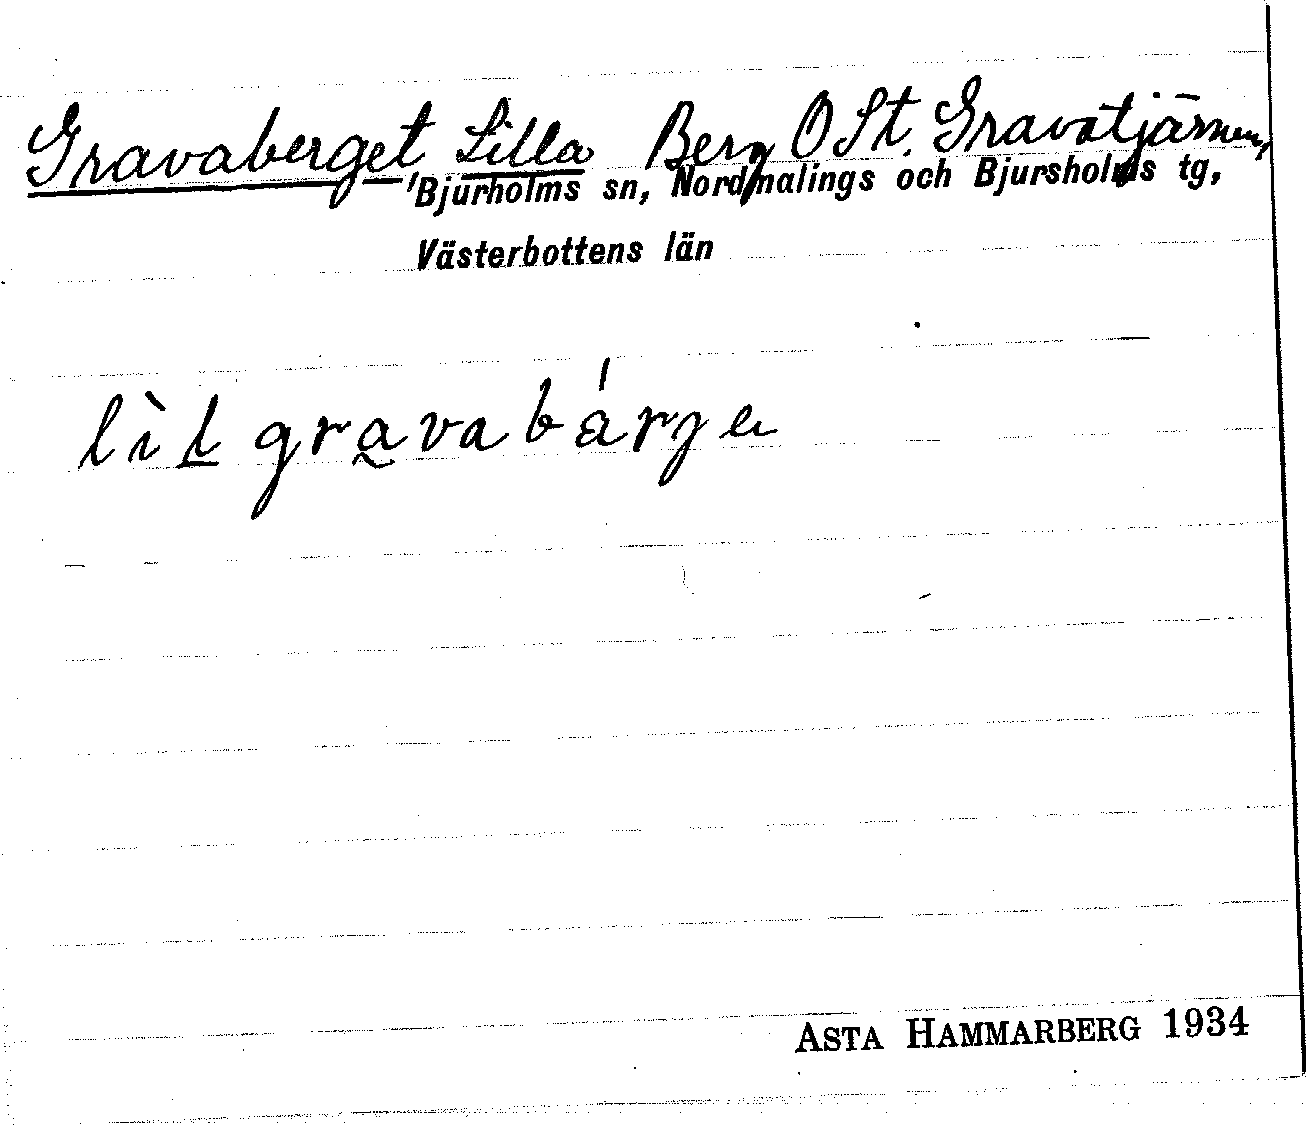 Gravaberget, Lilla Berg O St. Gravatjärnen,
Bjurholms sn, Nordmalings och Bjursholms tg,
Västerbottens län
lìl gravabárgе
ASTA HAMMARBERG 1934